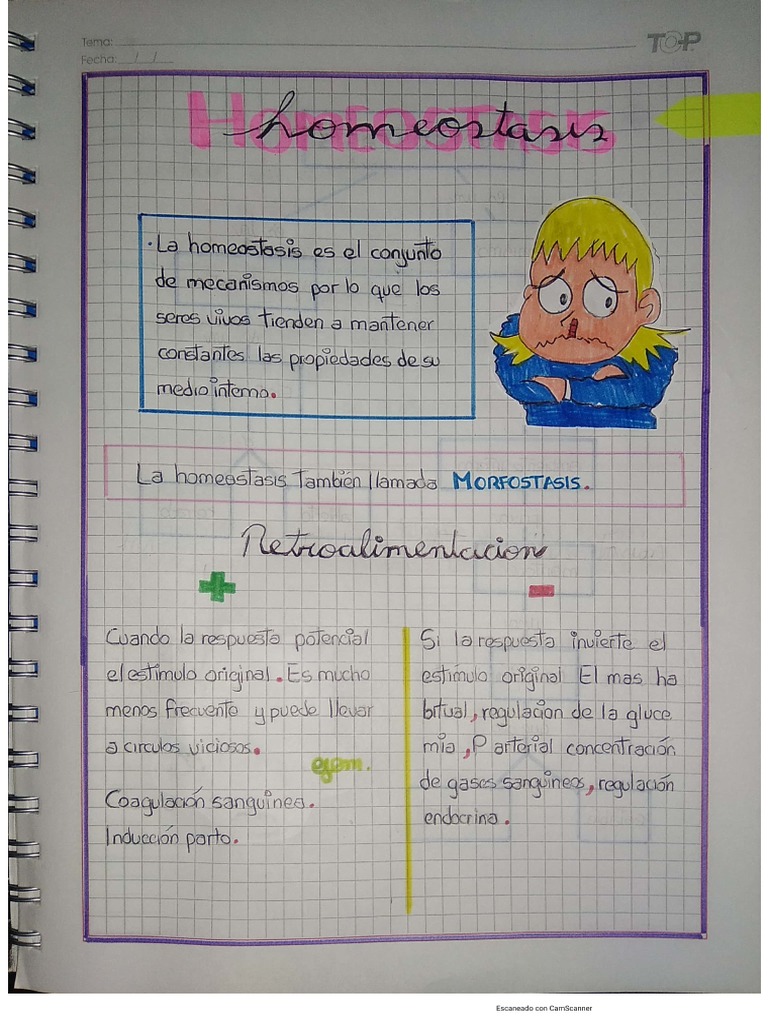 Tema:
TOP
Fecha: / /
HOMEOSTASIS
homeostasis
· La homeostasis es el conjunto
de mecanismos por lo que los
seres vivos tienden a mantener
constantes las propiedades de su
medio interno.
La homeostasis También llamada MORFOSTASIS.
Retroalimentacion
+
-
Cuando la respuesta potencial
el estimulo original. Es mucho
menos frecuente y puede llevar
a circulos viciosos.
ejem.
Coagulación sanguinea.
Inducción parto.
Si la respuesta invierte el
estímulo original El mas ha
bitual, regulacion de la gluce
mia, P arterial concentración
de gases sanguineos, regulación
endocrina.
Escaneado con CamScanner